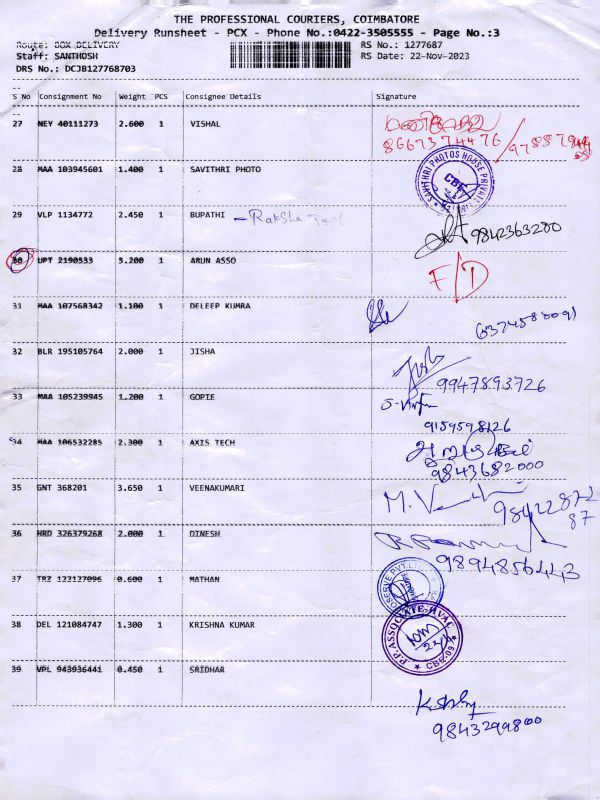 THE PROFESSIONAL COURIERS, COIMBATORE
Delivery Runsheet - PCX - Phone No.:0422-3505555 - Page No.:3
Route: BOX DELIVERY RS No.: 1277687
Staff: SANTHOSH RS Date: 22-Nov-2023
DRS No.: DCJB127768703
S No Consignment No Weight PCS Consignee Details Signature
27 NEY 40111273 2.600 1 VISHAL
8667374476 /
28 MAA 103945601 1.400 1 SAVITHRI PHOTO
SAVITHRI PHOTOS HOUSE PRIVATE
CBE
29 VLP 1134772 2.450 1 BUPATHI - Raksha
9842363280
30 UPT 2190533 5.200 1 ARUN ASSO F/D
31 MAA 107568342 1.100 1 DELEEP KUMRA
32 BLR 195105764 2.000 1 JISHA
9947893726
33 MAA 105239945 1.200 1 GOPIE
9159598126
34 MAA 106532285 2.300 1 AXIS TECH
9843682000
35 GNT 368201 3.650 1 VEENAKUMARI
9842287287
36 HRD 326379268 2.000 1 DINESH
9894856443
37 TRZ 122127096 0.600 1 MATHAN
38 DEL 121084747 1.300 1 KRISHNA KUMAR
P.P. ASSOCIATE HVAC
CBE-09
39 VPL 943936441 0.450 1 SRIDHAR
9843299800